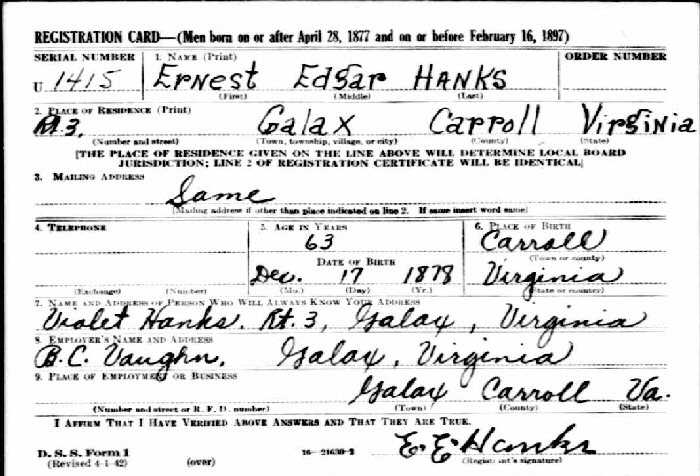 REGISTRATION CARD—(Men born on or after April 28, 1877 and on or before February 16, 1897)
SERIAL NUMBER 1. NAME (Print) ORDER NUMBER
U 1415 ERNEST Edgar HANKS
(First) (Middle) (Last)
2. PLACE OF RESIDENCE (Print)
Rt. 3, Galax Carroll Virginia
(Number and street) (Town, township, village, or city) (County) (State)
[THE PLACE OF RESIDENCE GIVEN ON THE LINE ABOVE WILL DETERMINE LOCAL BOARD
JURISDICTION; LINE 2 OF REGISTRATION CERTIFICATE WILL BE IDENTICAL]
3. MAILING ADDRESS
Same
[Mailing address if other than place indicated on line 2. If same insert word same]
4. TELEPHONE 5. AGE IN YEARS 6. PLACE OF BIRTH
63 Carroll
(Town or county)
DATE OF BIRTH
Dec. 17 1878 Virginia
(Exchange) (Number) (Mo.) (Day) (Yr.) (State or country)
7. NAME AND ADDRESS OF PERSON WHO WILL ALWAYS KNOW YOUR ADDRESS
Violet Hanks. Rt. 3, Galax, Virginia
8. EMPLOYER'S NAME AND ADDRESS
B.C. Vaughn, Galax, Virginia
9. PLACE OF EMPLOYMENT OR BUSINESS
Galax Carroll Va.
(Number and street or R. F. D. number) (Town) (County) (State)
I AFFIRM THAT I HAVE VERIFIED ABOVE ANSWERS AND THAT THEY ARE TRUE.
D. S. S. Form 1 E. E. Hanks
(Revised 4-1-42) (over) 16—21630-2 (Registrant's signature)